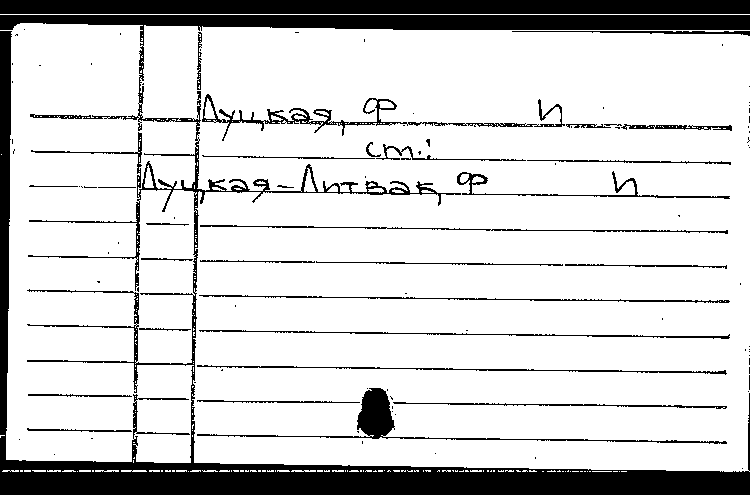 Луцкая, Ф И
ст.:
Луцкая-Литвак, Ф И